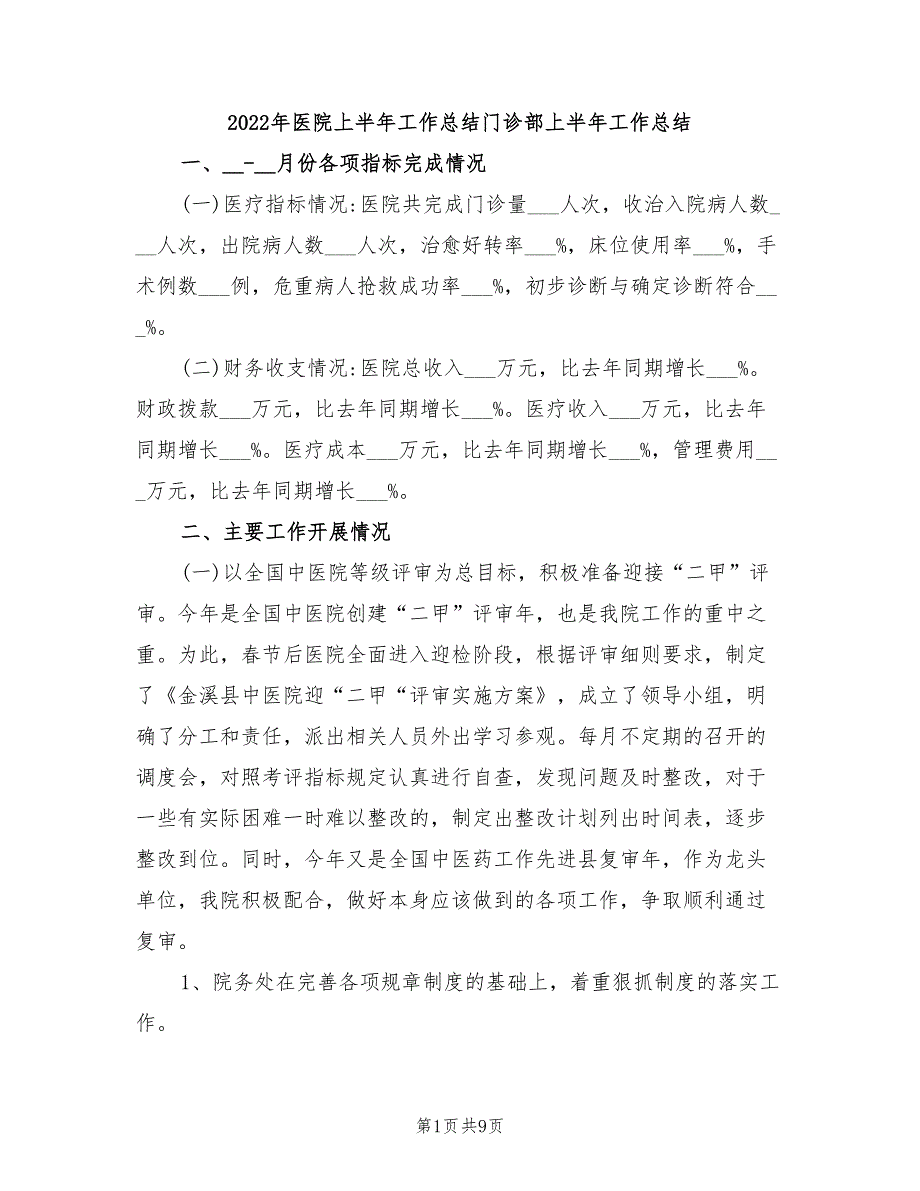 2022年医院上半年工作总结门诊部上半年工作总结
一、__-__月份各项指标完成情况
(一)医疗指标情况:医院共完成门诊量___人次，收治入院病人数_
__人次，出院病人数___人次，治愈好转率___%，床位使用率___%，手
术例数___例，危重病人抢救成功率___%，初步诊断与确定诊断符合__
_%。
(二)财务收支情况:医院总收入___万元，比去年同期增长___%。
财政拨款___万元，比去年同期增长___%。医疗收入___万元，比去年
同期增长___%。医疗成本___万元，比去年同期增长___%，管理费用__
_万元，比去年同期增长___%。
二、主要工作开展情况
(一)以全国中医院等级评审为总目标，积极准备迎接“二甲”评
审。今年是全国中医院创建“二甲”评审年，也是我院工作的重中之
重。为此，春节后医院全面进入迎检阶段，根据评审细则要求，制定
了《金溪县中医院迎“二甲“评审实施方案》，成立了领导小组，明
确了分工和责任，派出相关人员外出学习参观。每月不定期的召开的
调度会，对照考评指标规定认真进行自查，发现问题及时整改，对于
一些有实际困难一时难以整改的，制定出整改计划列出时间表，逐步
整改到位。同时，今年又是全国中医药工作先进县复审年，作为龙头
单位，我院积极配合，做好本身应该做到的各项工作，争取顺利通过
复审。
1、院务处在完善各项规章制度的基础上，着重狠抓制度的落实工
作。
第1页共9页